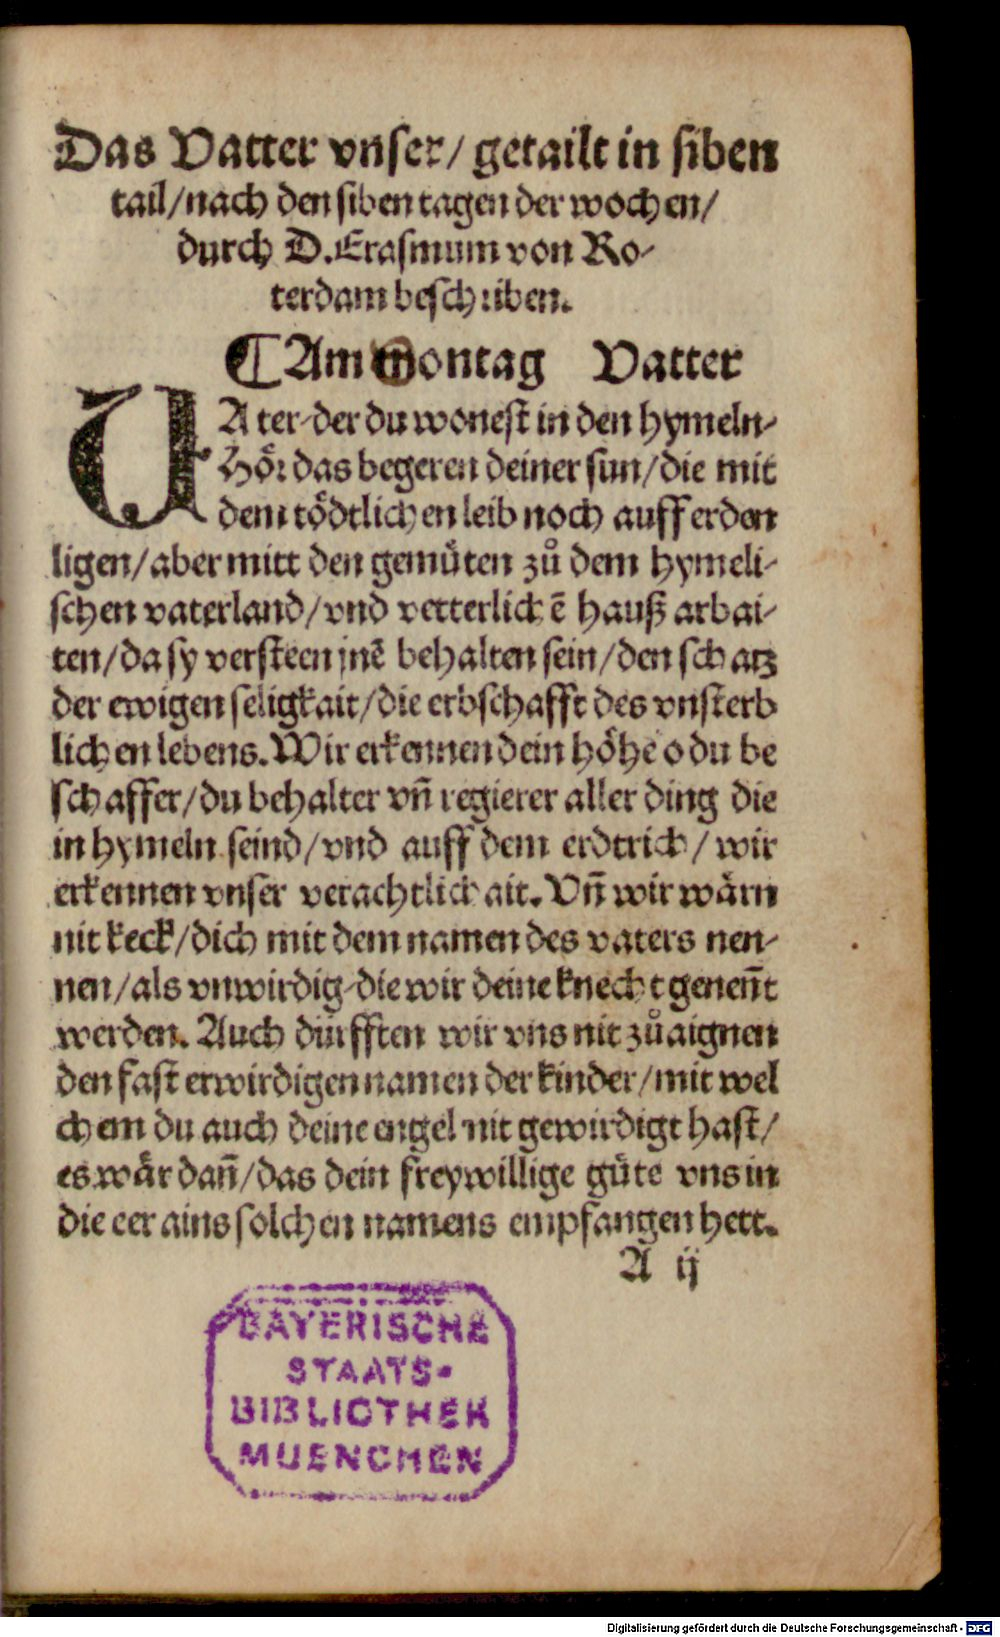 Das Vatter vnser/ getailt in siben
tail/nach den siben tagen der wochen/
durch D.Erasmum von Ro-
terdam beschriben.
¶Am Montag Vatter
VAter-der du wonest in den hymeln-
Hör das begeren deiner sun/die mit
dem tödtlichen leib noch auff erden
ligen/aber mitt den gemüten zů dem hymeli-
schen vaterland/vnd vetterlichē hauß arbai-
ten/da sy versteen jnē behalten sein/den schatz
der ewigen seligkait/die erbschafft des vnsterb
lichen lebens. Wir erkennen dein höhe o du be
schaffer/du behalter vn̄ regierer aller ding die
in hymeln seind/vnd auff dem erdtrich/ wir
erkennen vnser verachtlichait. Vn̄ wir wärn
nit keck/dich mit dem namen des vaters nen-
nen/als vnwirdig-die wir deine knecht genen̄t
werden. Auch dürfften wir vns nit zů aignen
den fast erwirdigen namen der kinder/mit wel
chem du auch deine engel nit gewirdigt hast/
es wär dan̄/das dein freywillige güte vns in
die eer ains solchen namens empfangen hett.
A ij
BAYERISCHE
STAATS-
BIBLIOTHEK
MUENCHEN
Digitalisierung gefördert durch die Deutsche Forschungsgemeinschaft - DFG